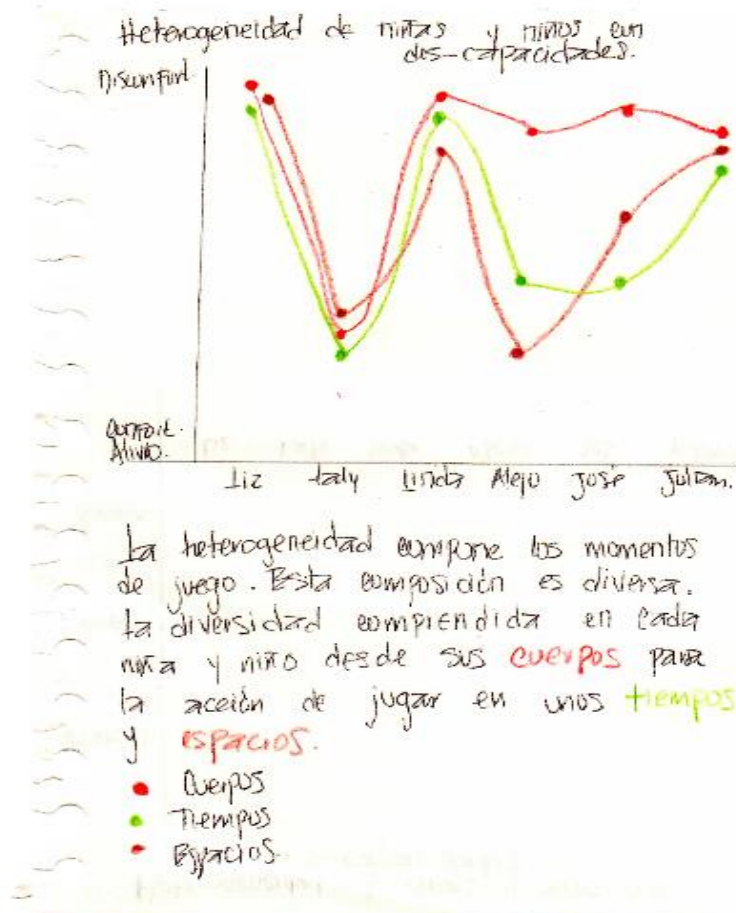 Heterogeneidad de niñas y niños con
dis-capacidades.
Disconfort
Confort.
Alivio.
Liz Lady Linda Alejo José Julián.
La heterogeneidad compone los momentos
de juego. Esta composición es diversa.
La diversidad comprendida en cada
niña y niño desde sus cuerpos para
la acción de jugar en unos tiempos
y espacios.
Cuerpos
Tiempos
Espacios.